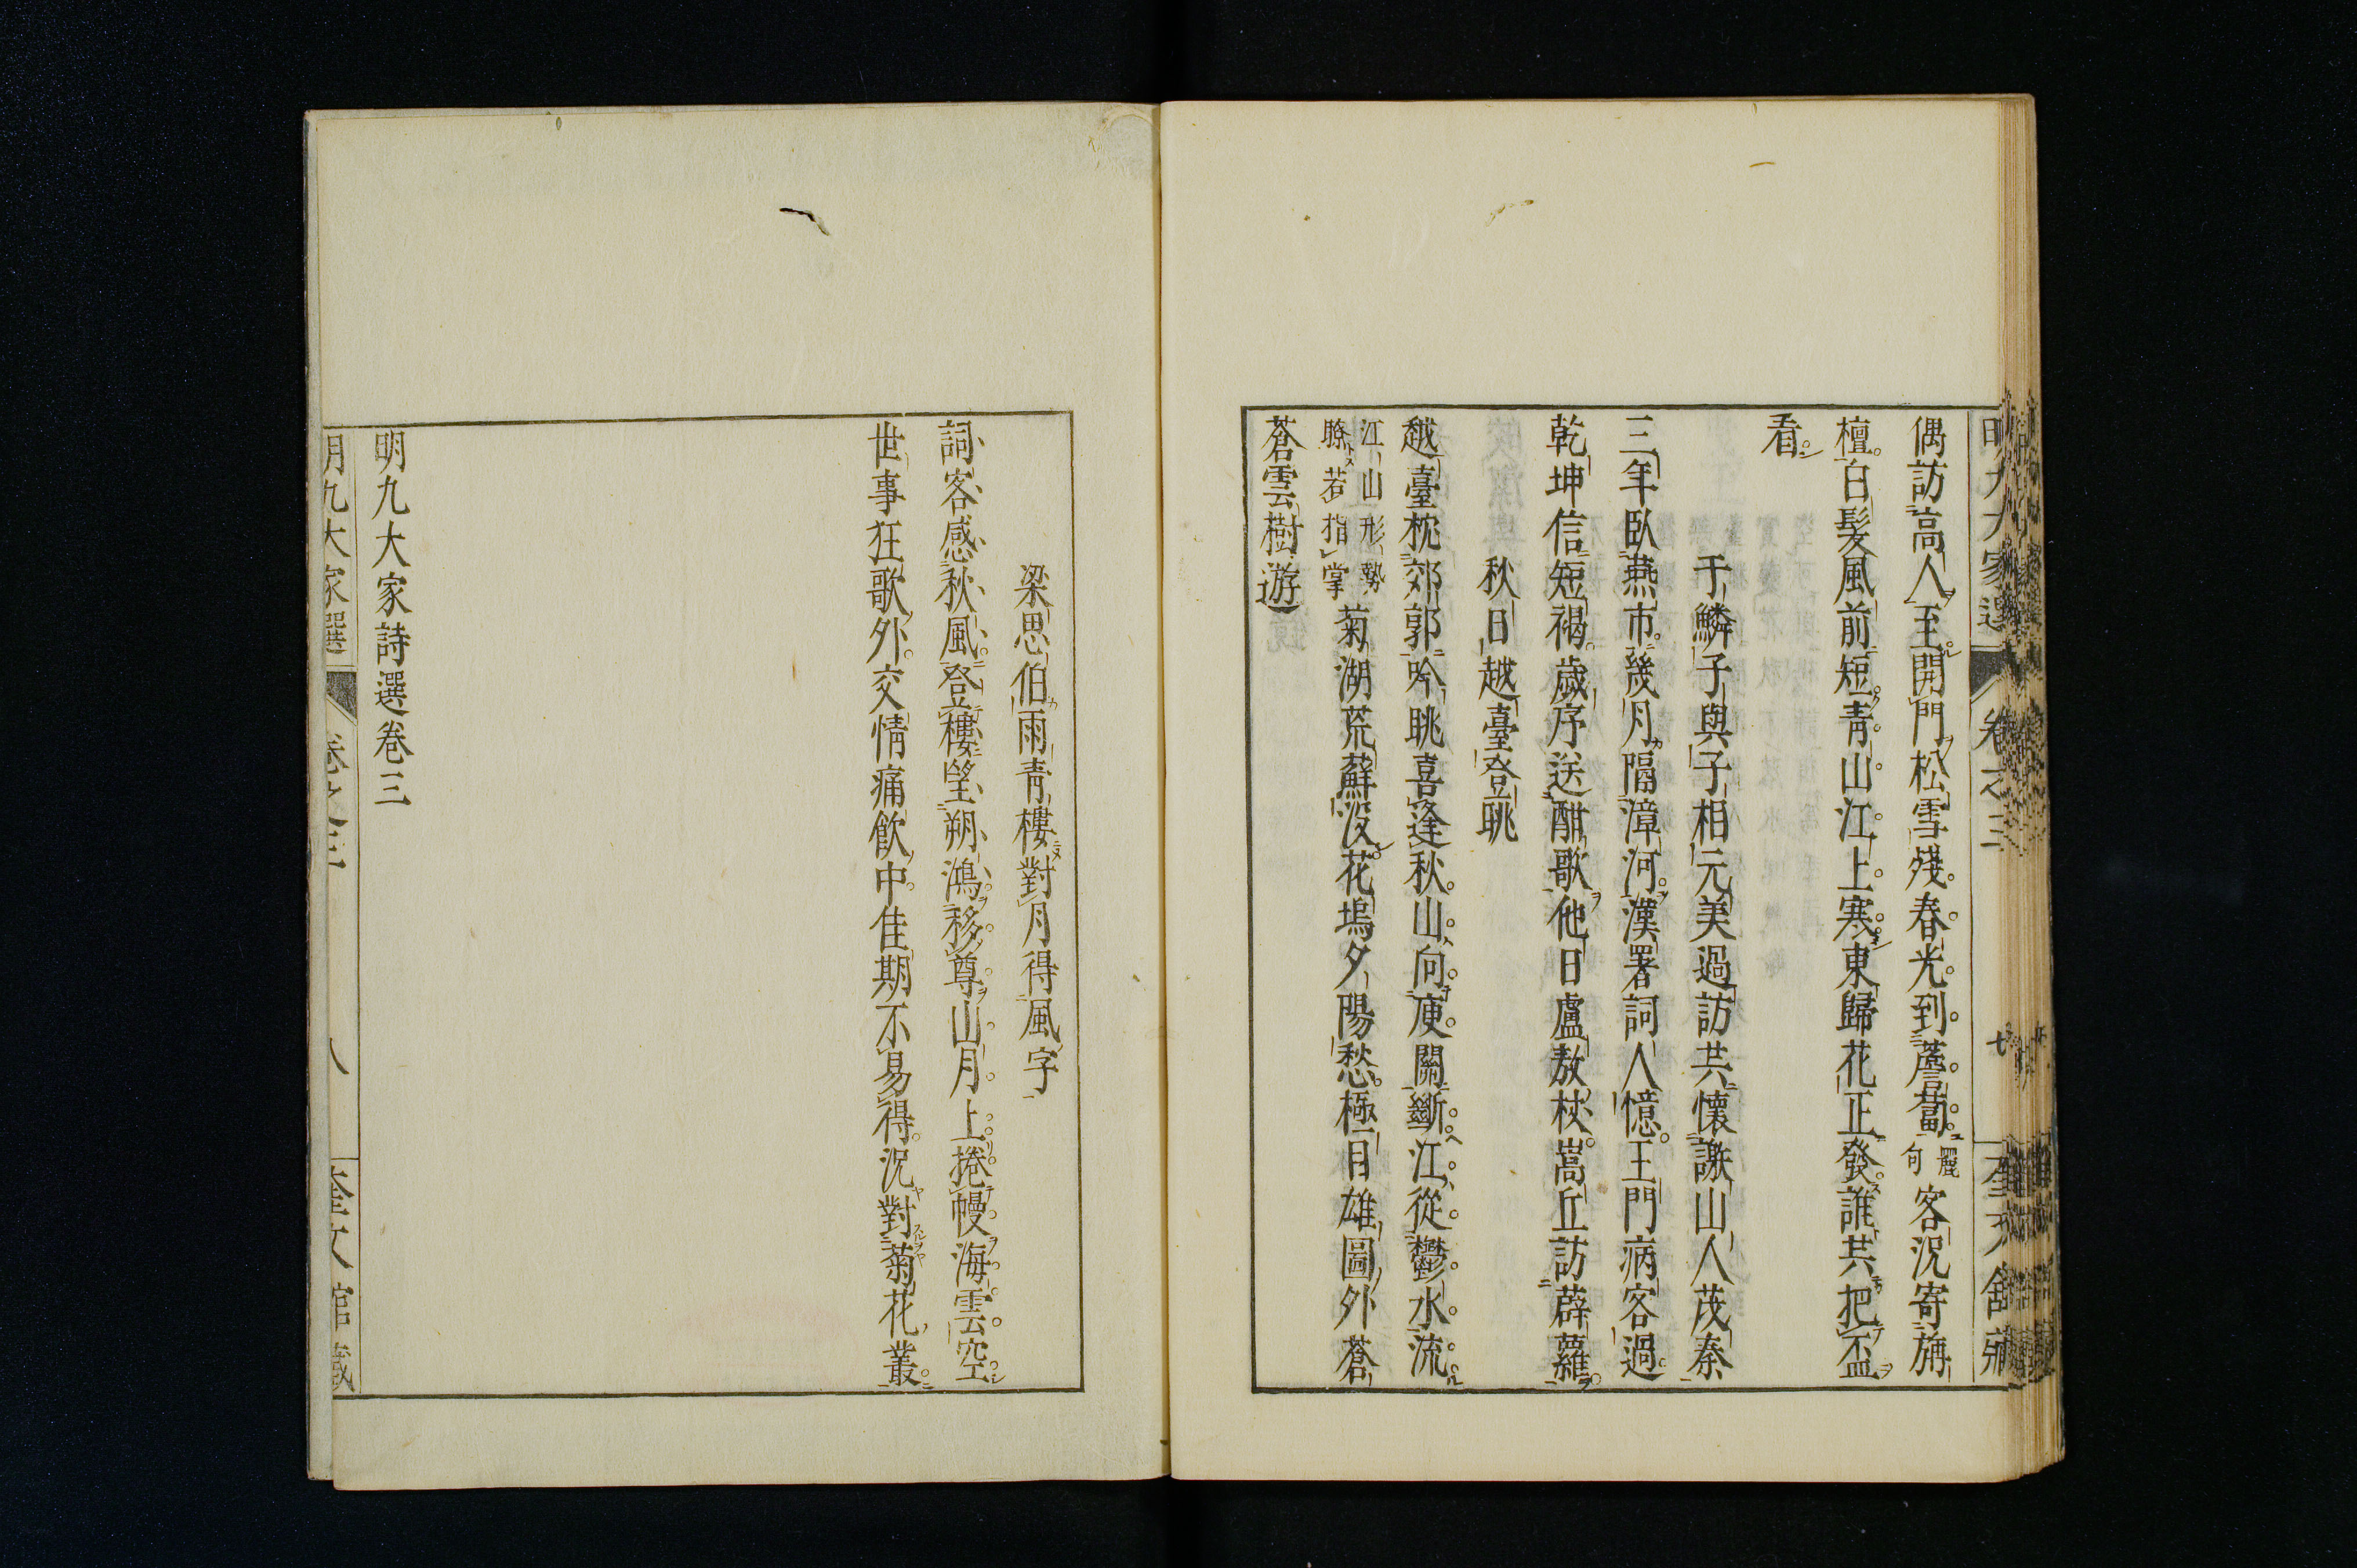 偶訪高人至開門松雪殘春光到薝蔔麗句客況寄旃
檀白髮風前短青山江上寒東歸花正發誰共把盃
看
于鱗子與子相元美過訪共懷謝山人茂秦
三年臥燕市幾月隔漳河漢署詞人憶王門病客過
乾坤信短褐歲序送酣歌他日盧敖杖嵩丘訪薜蘿
秋日越臺登眺
越臺枕郊郭吟眺喜逢秋山向庾關斷江從鬱水流
江山形勢
瞭若指掌
菊湖荒蘚沒花塢夕陽愁極目雄圖外蒼
蒼雲樹遊
梁思伯雨青樓對月得風字
詞客感秋風登樓望朔鴻移尊山月上捲幔海雲空
世事狂歌外交情痛飲中佳期不易得況對菊花叢
明九大家詩選卷三